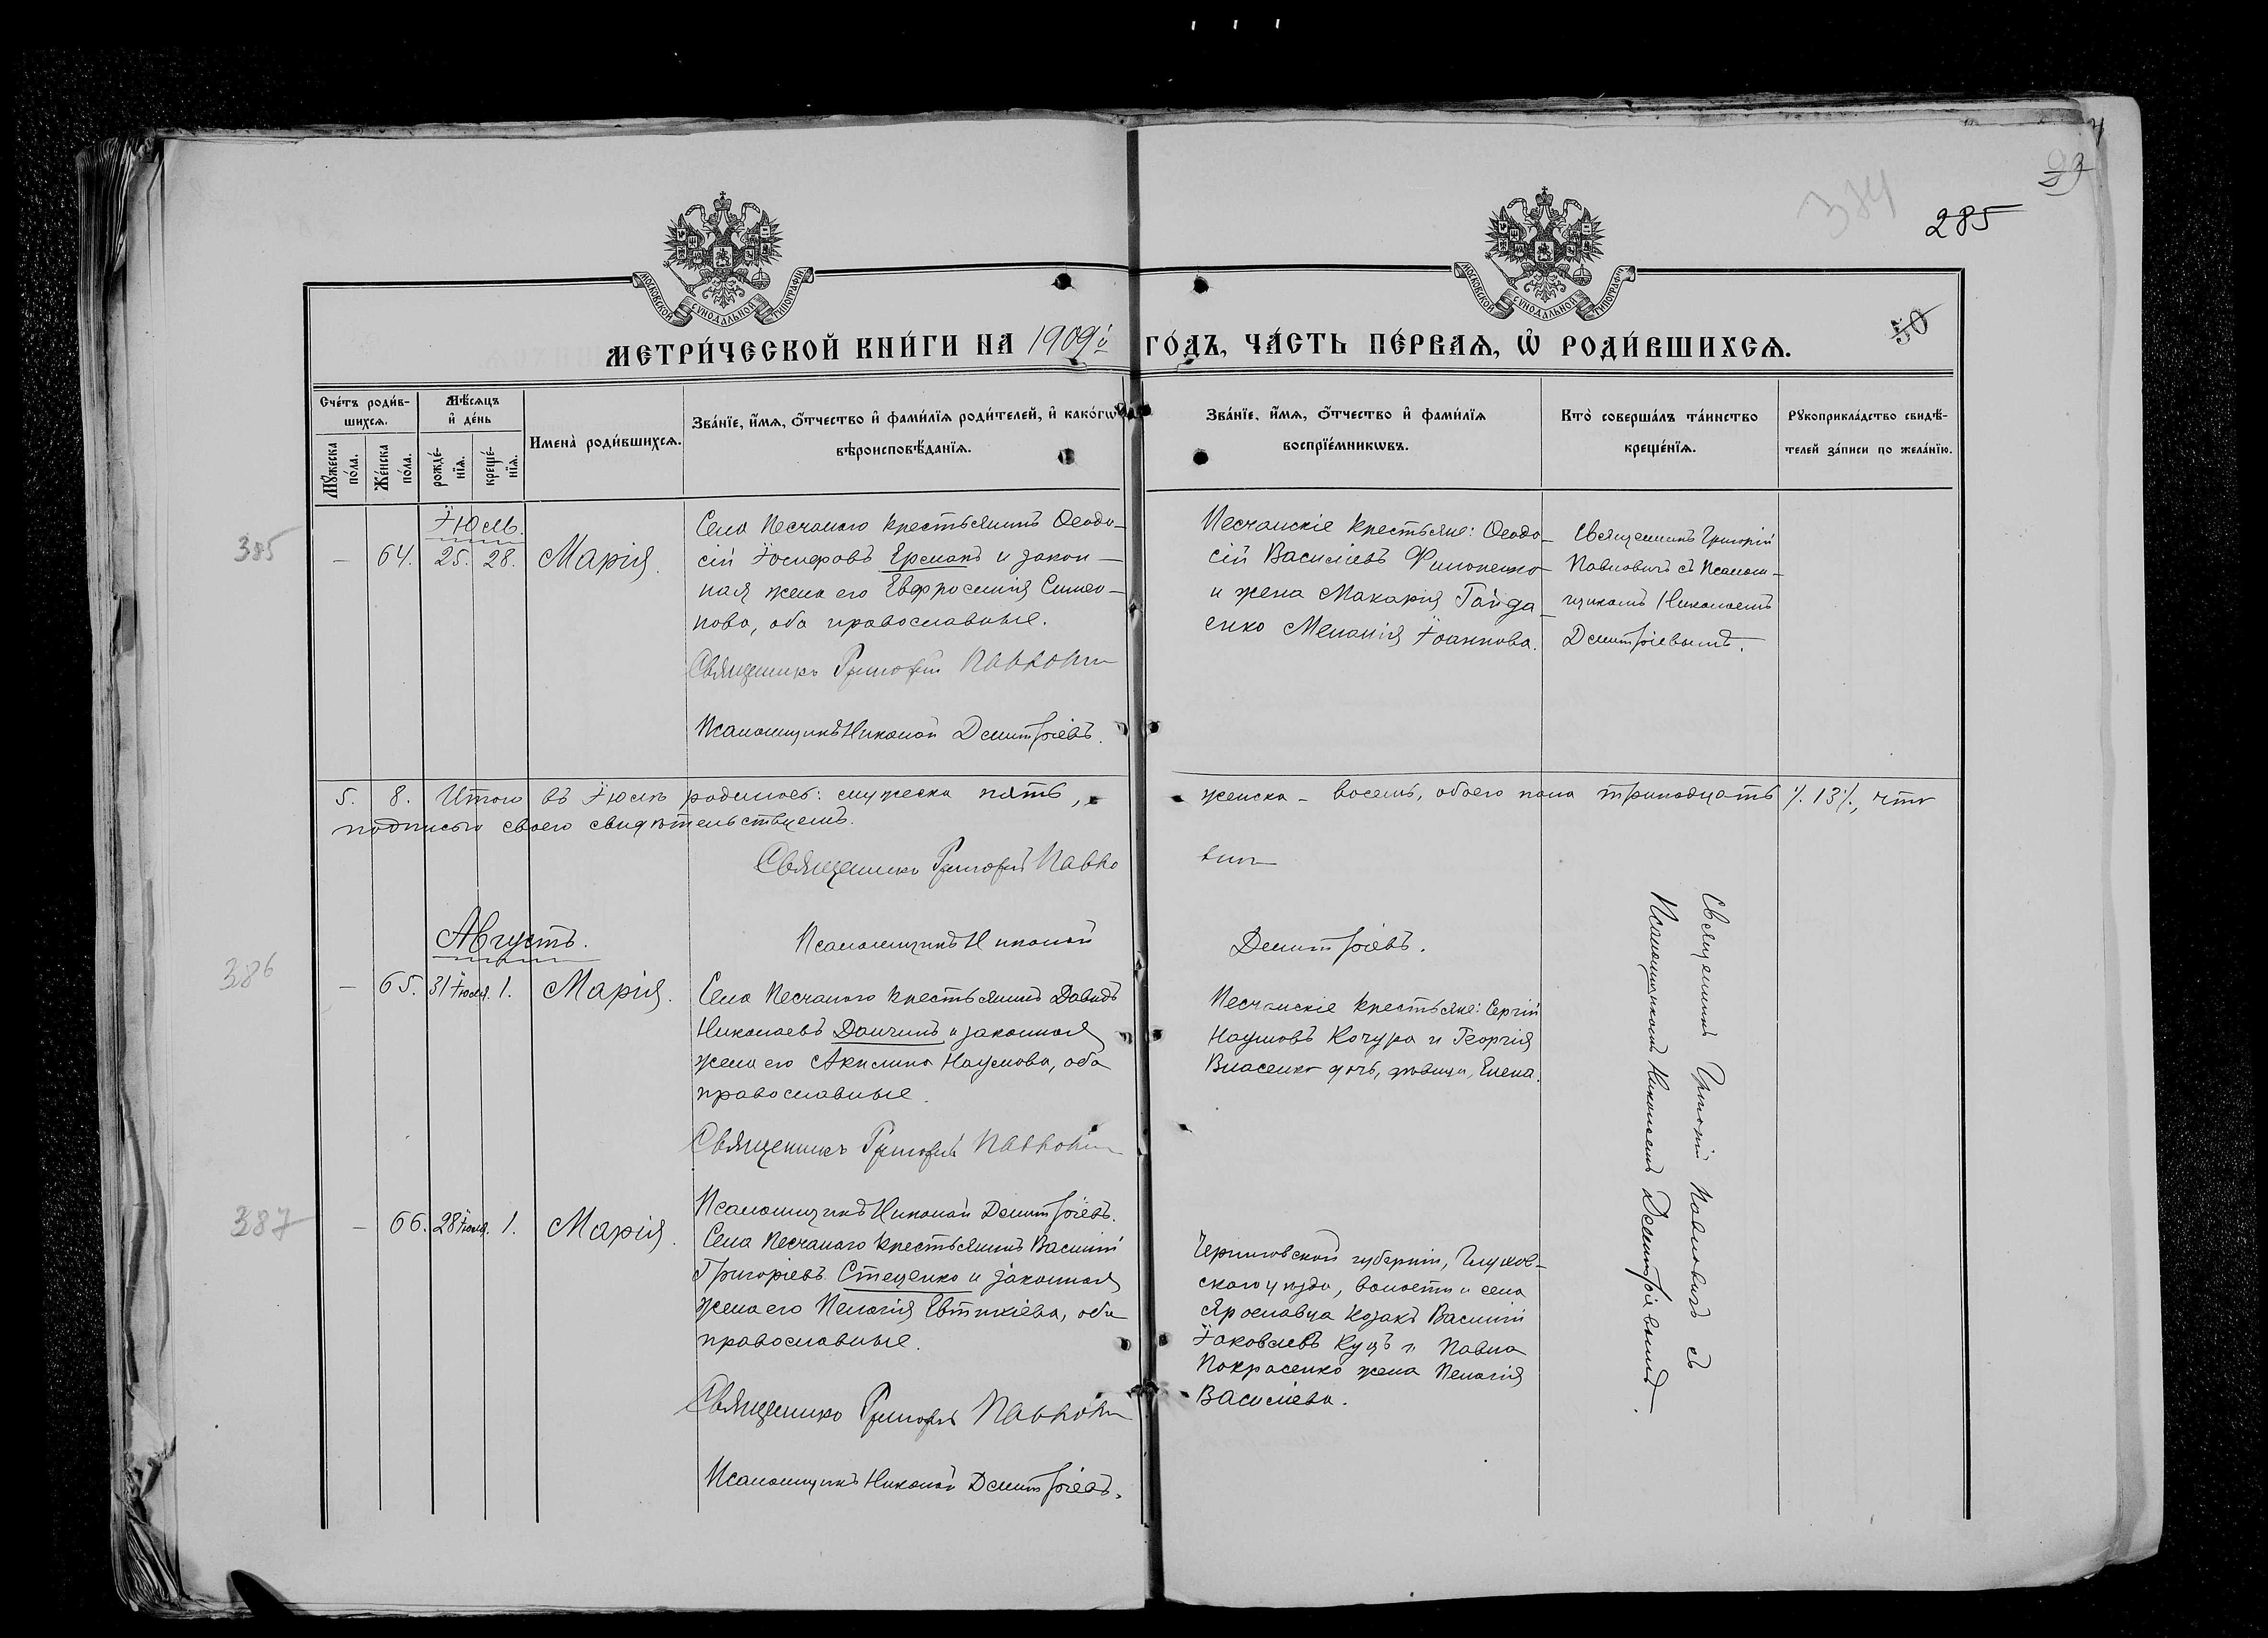 285
50
МОСКОВСКОЙ СѴНОДАЛЬНОЙ ТИПОГРАФІИ
МОСКОВСКОЙ СѴНОДАЛЬНОЙ ТИПОГРАФІИ
МЕТРИ́ЧЕСКОЙ КНИ́ГИ НА 1909й ГО́ДЪ, ЧА́СТЬ ПЕ́РВАѦ, Ѡ҆ РОДИ́ВШИХСѦ.
Сче́тъ роди́в-
шихсѧ.
Мꙋ́жеска по́ла.
Же́нска по́ла.
Мѣ́сѧцъ
и҆ де́нь
рожде́-
нїѧ.
креще́-
нїѧ.
И҆мена̀ роди́вшихсѧ.
Зва́нїе, и҆́мѧ, ѻ҆́тчество и҆ фами́лїѧ роди́телей, и҆ како́гѡ
вѣроисповѣ́данїѧ.
Зва́нїе, и҆́мѧ, ѻ҆́тчество и҆ фами́лїѧ
воспрїе́мникѡвъ.
Кто̀ соверша́лъ та́инство
креще́нїѧ.
Рꙋкоприкла́дство свидѣ́-
телей за́писи по жела́нїю.
385
Іюль.
— 64. 25. 28. Марія.
Села Песчанаго крестьянинъ Ѳеодо-
сій Іосифовъ Ермакъ и закон-
ная жена его Евфросинія Симео-
нова, оба православные.
Священникъ Григорій Павловичъ
Псаломщикъ Николай Димитріевъ.
Песчанскіе крестьяне: Ѳеодо-
сій Василіевъ Филоненко
и жена Макарія Гайда-
енко Меланія Іоаннова.
Священникъ Григорій
Павловичъ съ Псалом-
щикомъ Николаемъ
Димитріевымъ.
5. 8. Итого въ Іюлѣ родилось: мужеска пять, женска - восемь, обоего пола тринадцать ٪ 13 ٪, что
подписью своею свидѣтельствуемъ.
Священникъ Григорій Павловичъ
Псаломщикъ Николай Димитріевъ.
Августъ.
386
— 65. 31 Іюля. 1. Марія.
Села Песчанаго крестьянинъ Давидъ
Николаевъ Данчинъ и законная
жена его Акилина Наумова, оба
православные.
Священникъ Григорій Павловичъ
Псаломщикъ Николай Димитріевъ.
Песчанскіе крестьяне: Сергій
Наумовъ Кочура и Георгія
Власенко дочь, дѣвица, Елена.
Священникъ Григорій Павловичъ съ
Псаломщикомъ Николаемъ Димитріевымъ.
387
— 66. 28 Іюля. 1. Марія.
Села Песчанаго крестьянинъ Василій
Григоріевъ Стеценко и законная
жена его Пелагія Евтихіева, оба
православные.
Священникъ Григорій Павловичъ
Псаломщикъ Николай Димитріевъ.
Черниговской губерніи, Глухов-
скаго уѣзда, волости и села
Ярославца козакъ Василій
Іаковлевъ Куцъ и Павла
Покрасенко жена Пелагія
Василіева.